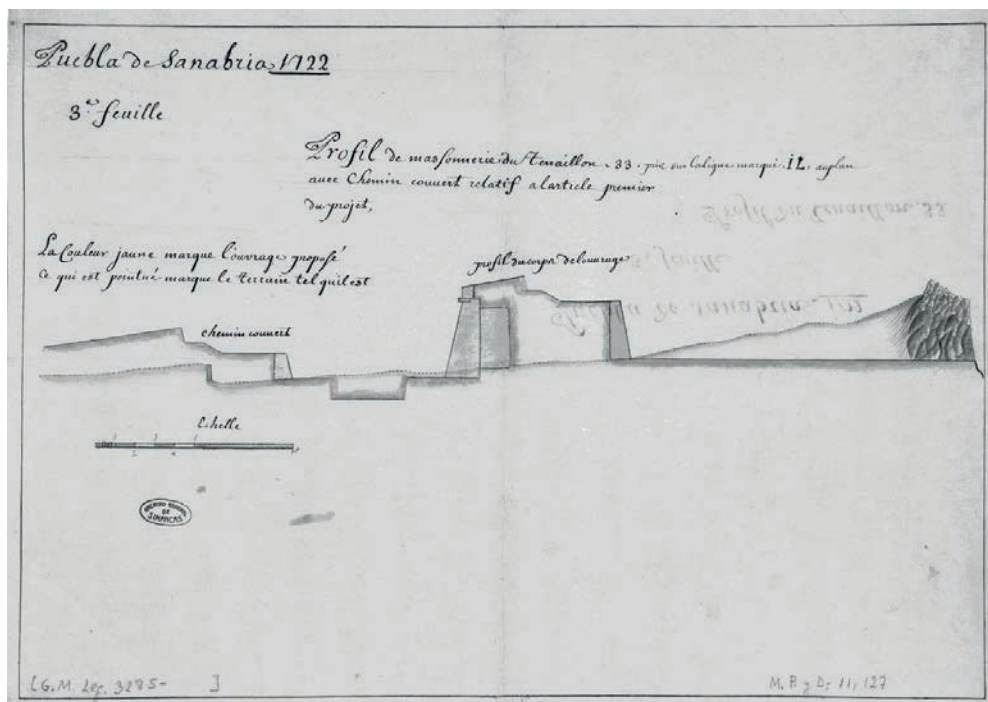 Puebla de Sanabria 1722
3.e feuille
Profil de massonnerie du Tenaillon .33. pris sur la ligne marqué .IL. au plan
avec Chemin couvert relatif a l'article premier
du projet,
La Couleur jaune marque l'ouvrage proposé
Ce qui est pointué marque le terrain tel qu'il est
profil du corps de l'ouvrage
chemin couvert
Echelle
ARCHIVO GENERAL
DE
SIMANCAS
[G.M. Leg. 3285- ]
M. P. y D: 11, 127